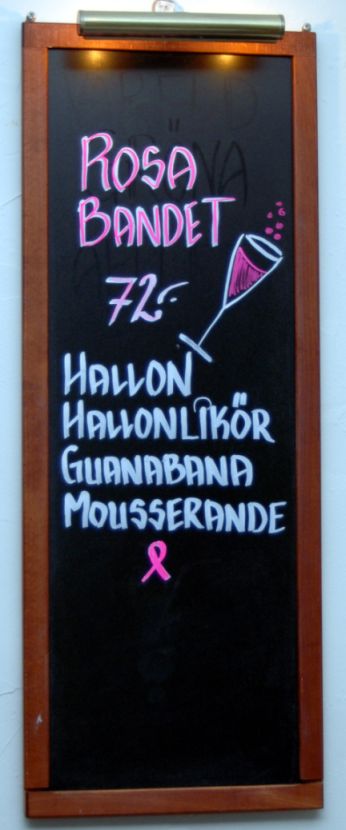 ROSA
BANDET
72:-
HALLON
HALLONLIKÖR
GUANABANA
MOUSSERANDE